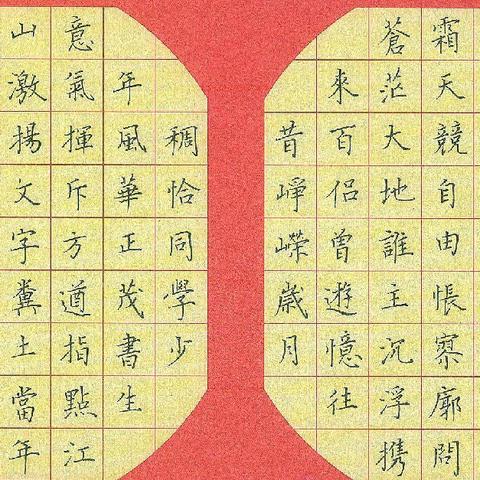 霜天競自由悵寥廓問
蒼茫大地誰主沉浮携
來百侶曾遊憶往
昔崢嶸歲月
稠恰同學少
年風華正茂書生
意氣揮斥方遒指點江
山激揚文字糞土當年